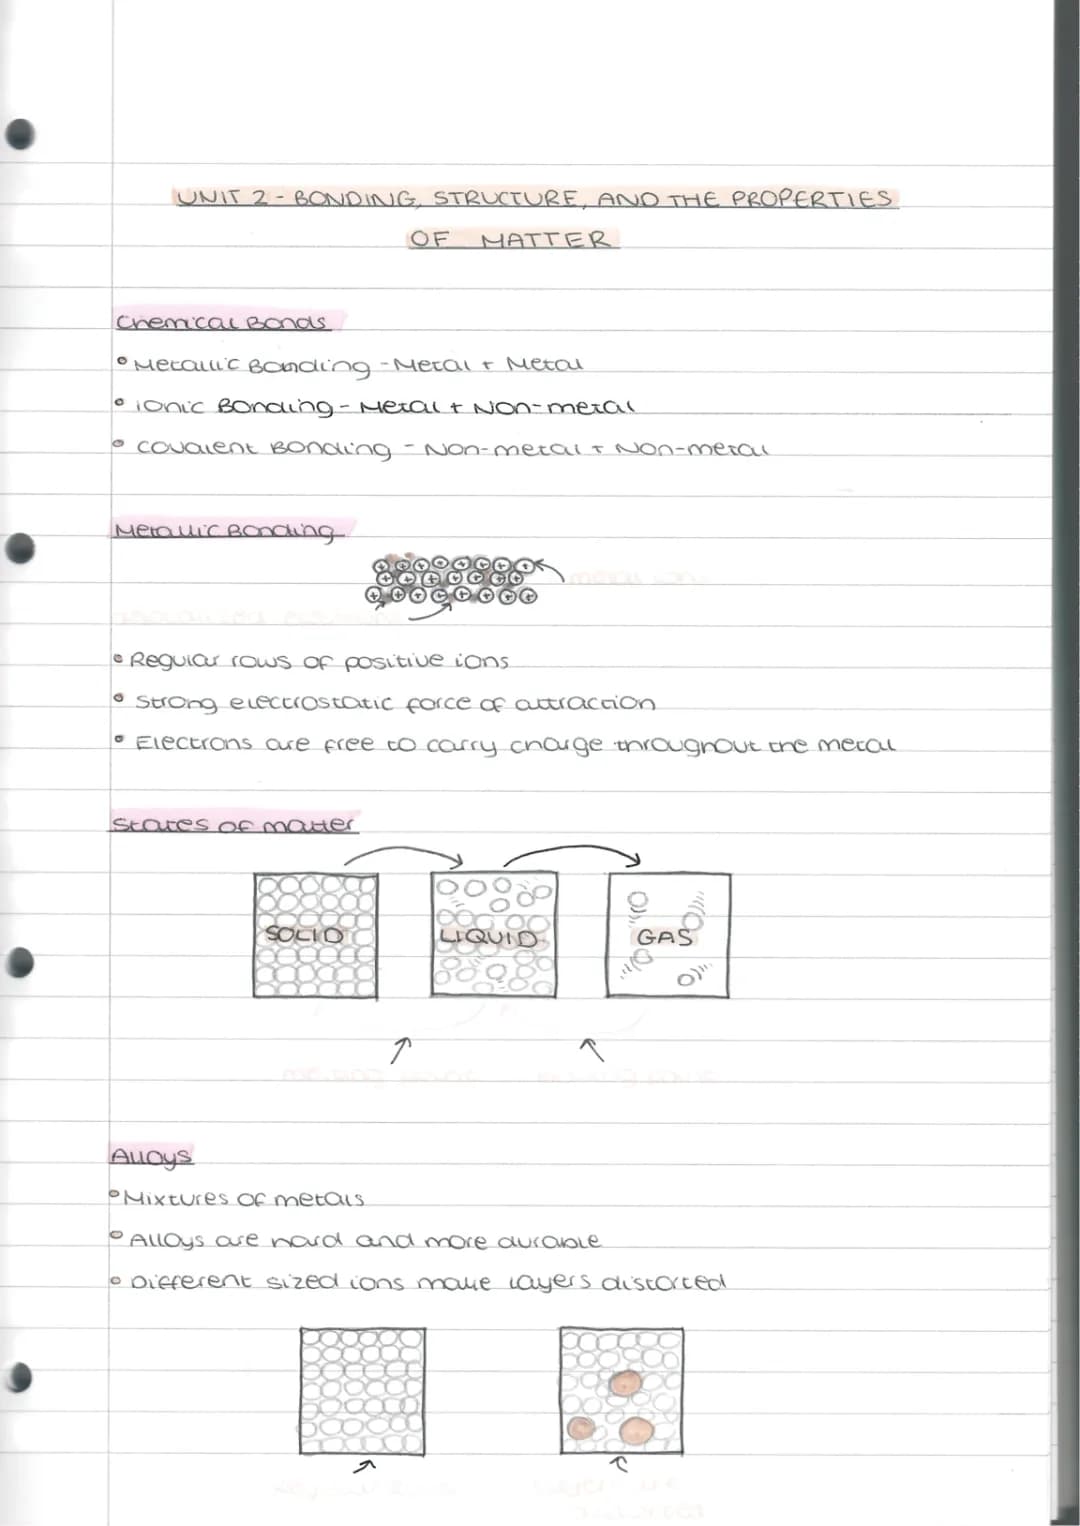 UNIT 2 - BONDING, STRUCTURE, AND THE PROPERTIES
OF MATTER
Chemical Bonds
• Metallic Bonding - Metal + Metal
• ionic Bonding - Metal + Non-metal
• Covalent Bonding - Non-metal + Non-metal
Metallic Bonding
metal ion
• Regular rows of positive ions
• Strong electrostatic force of attraction
• Electrons are free to carry charge throughout the metal
States of matter
SOLID LIQUID GAS
Alloys
• Mixtures of metals
• Alloys are hard and more durable
• Different sized ions make layers distorted